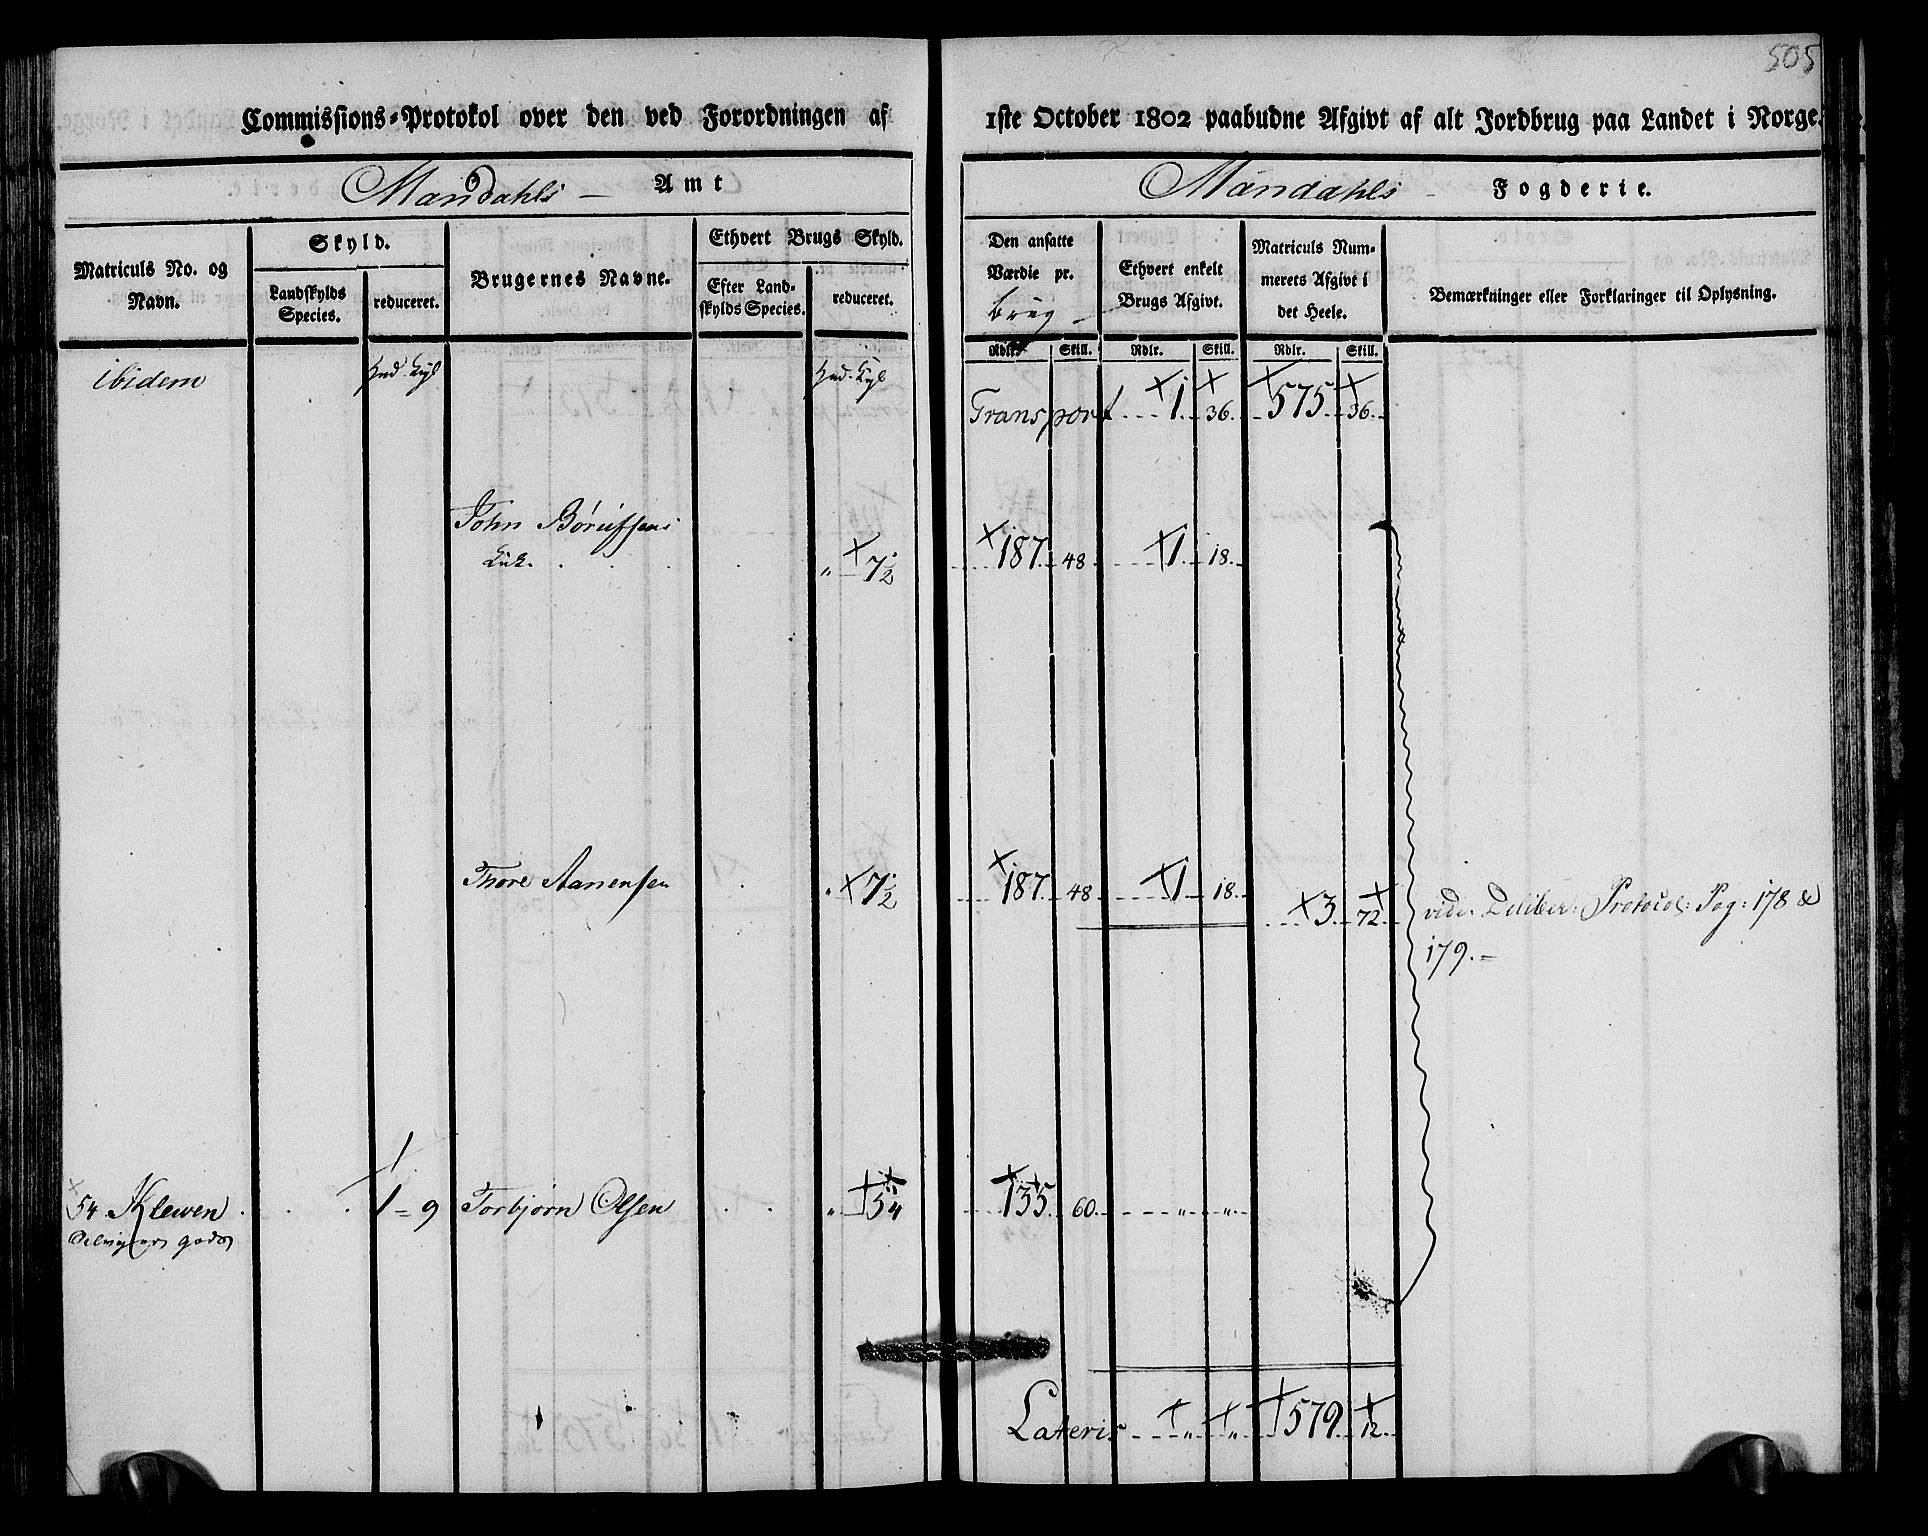 505
Commissions-Protokol over den ved Forordningen af 1ste October 1802 paabudne Afgivt af alt Jordbrug paa Landet i Norge.
Mandahls — Amt
Mandahls - Fogderie.
Matriculs No. og Navn.
Skyld.
Landskylds Species.
reduceret.
Brugernes Navne.
Ethvert Brugs Skyld.
Efter Landskylds Species.
reduceret.
Den ansatte Værdie pr. brug
Ethvert enkelt Brugs Afgivt.
Matriculs Nummerets Afgivt i det Heele.
Bemærkninger eller Forklaringer til Oplysning.
Rdlr. Skill. Rdlr. Skill. Rdlr. Skill.
ibidem
Transport 1. 36. 575. 36.
John
" 7½ 187. 48 1. 18.
Thore Aanensen " 7½ 187. 48 1. 18. 3. 72. vide. Deliber: Protocol: Pag: 178 &
179.=
54 Klewen 1 = 9 Torbjørn Olsen " 54 135. 60. " "
gods
Lateris " " 579. 12.